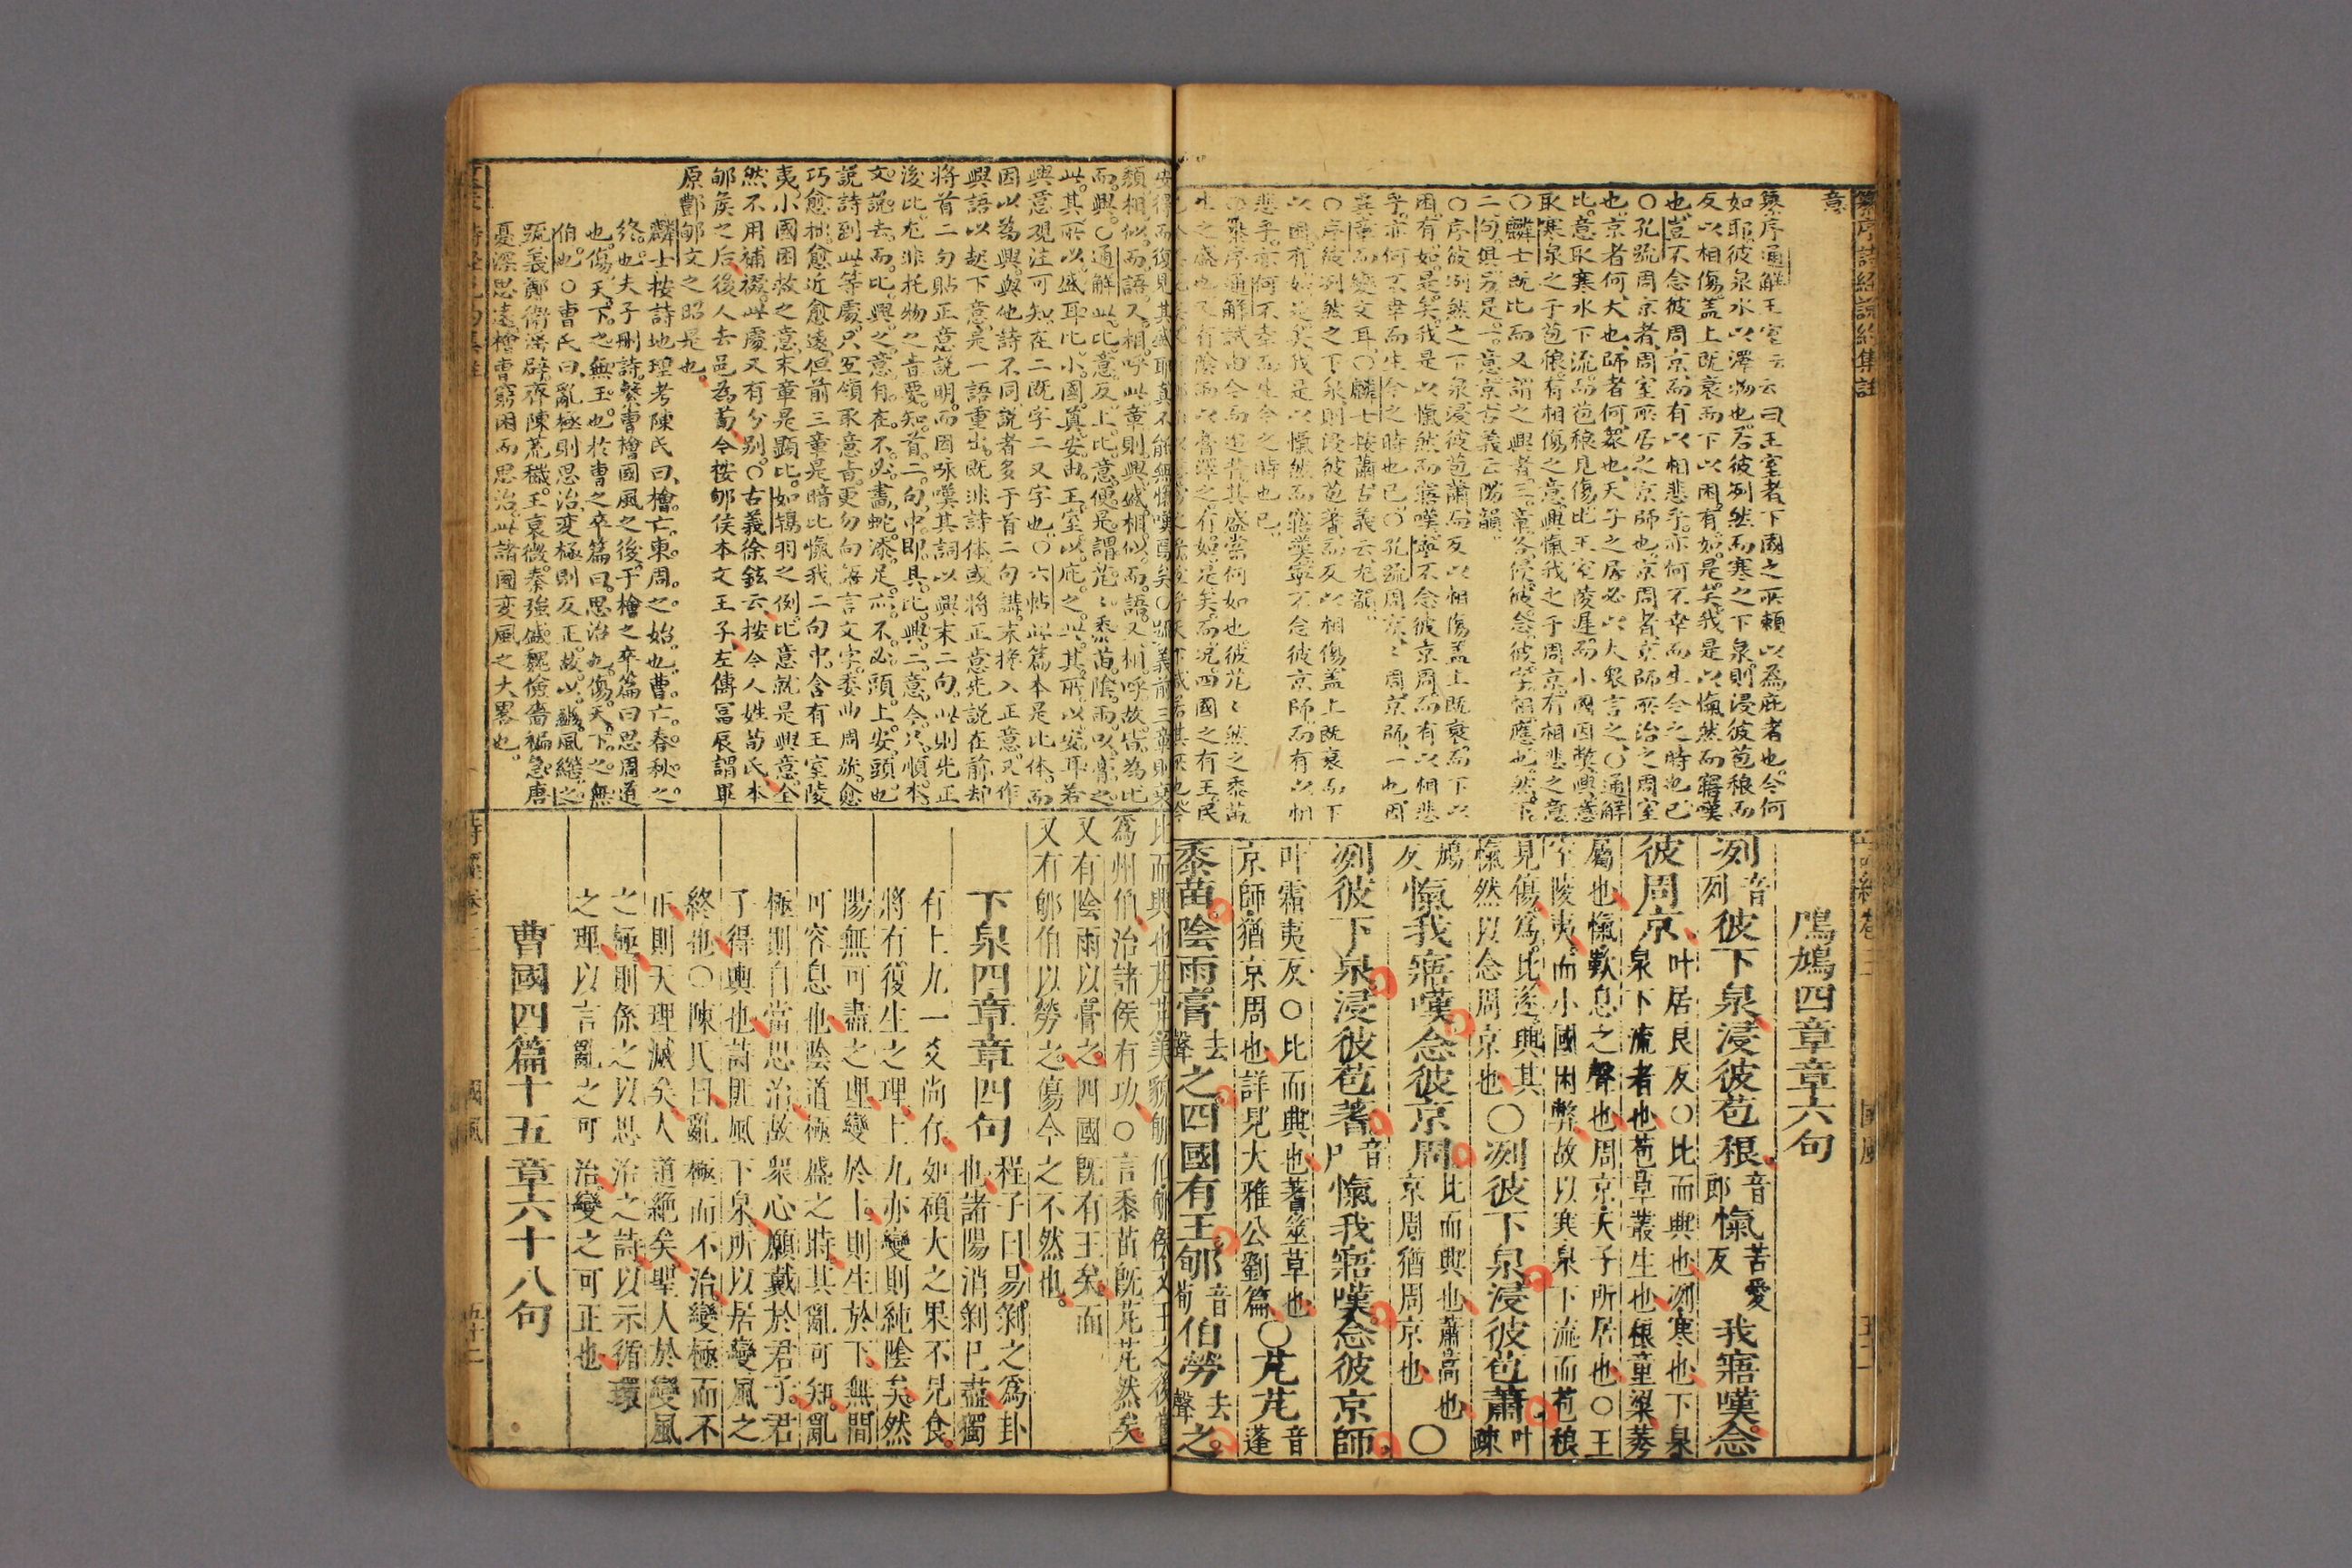 纂序詩經說約集註
意
纂序通解王室云云曰王室者下國之所賴以為庇者也今何
如耶彼泉水以澤物也若彼冽然而寒之下泉則浸彼苞稂而
反以相傷蓋上既衰而下以困有如是矣我是以愾然而寤嘆
也豈不念彼周京而有以相悲乎亦何不幸而生今之時也已
○孔疏周京者周室所居之京師也京周者京師所治之周室
也京者何大也師者何衆也天子之居必以大衆言之○通解
比意取寒水下流而苞稂見傷比王室陵遲而小國困弊興意
取寒泉之于苞稂有相傷之意興愾我之于周京有相悲之意
○麟士既比而又謂之興者三章各浸彼念彼字相應也然下
二句俱只是一意京古義云陽韻
○序彼冽然之下泉浸彼苞蕭而反以相傷蓋上既衰而下以
困有如是矣我是以愾然而寤嘆寧不念彼京周而有以相悲
乎亦何不幸而生今之時也已○孔疏周京京周京師一也因
異章而變文耳○麟士按蕭古義云尤韻
○序彼冽然之下泉則浸彼苞蓍而反以相傷蓋上既衰而下
以困有如是矣我是以愾然而寤嘆寧不念彼京師而有以相
悲乎亦何不幸而生今之時也已
纂序通解試由今而追昔其盛當何如也彼芃芃然之黍苗
生之盛也又有陰雨以膏澤之有如是矣而况四國之有王民
鳲鳩四章章六句
冽音列彼下泉浸彼苞稂音郎愾苦愛反我寤嘆念
彼周京叶居良反○比而興也冽寒也下泉泉下流者也苞草叢生也稂童粱莠
屬也愾歎息之聲也周京天子所居也○王室陵夷而小國困弊故以寒泉下流而苞稂
見傷爲比遂興其愾然以念周京也○冽彼下泉浸彼苞蕭叶疎
鳩反愾我寤嘆念彼京周比而興也蕭蒿也京周猶周京也○
冽彼下泉浸彼苞蓍音尸愾我寤嘆念彼京師
叶霜夷反○比而興也蓍筮草也京師猶京周也詳見大雅公劉篇○芃芃音蓬
黍苗陰雨膏去聲之四國有王郇音荀伯勞去聲之
國風
類相似而語又相呼此章則興盛相似而語又相呼故皆為比
而興○通解此比意反上比意便是謂芃芃黍苗陰雨以膏之
此其所以盛耳比小國奠安由王室以庇之此其所以安耳若
興意現注可知在二既字二又字也○六帖此篇本是比体而
因以為興與他詩不同說者多于首二句講末搀入正意又作
興語以起下意是一語重出既非詩体或將正意先說在前却
將首二句貼正意說明而因咏嘆其詞以興末二句此則先正
後比尤非托物之音要知首二句中即具比興二意今只順本
文說去而比興之意自在不必畫蛇添足亦不必頭上安頭也
說詩到此等處只宜領取意旨更勿句語言文字委曲周旋愈
巧愈拙愈近愈遠但前三章是暗比愾我二句中含有王室陵
夷小國困敝之意末章是顯比如鴇羽之例比意就是興意全
然不用補襯此處又有分別○古義徐鉉云按今人姓荀氏本
郇侯之后後人去邑為荀今按郇侯本文王子左傳富辰謂畢
原酆郇文之昭是也
麟士按詩地理考陳氏曰檜亡東周之始也曹亡春秋之
終也夫子刪詩繫曹檜國風之後于檜之卒篇曰思周道
也傷天下之無王也於曹之卒篇曰思治也傷天下之無
伯也○曹氏曰亂極則思治變極則反正故以豳風繼之
疏義鄭衛淫僻齊陳荒穢王衰微秦強盛魏儉嗇褊急唐
憂深思遠檜曹窮困而思治此諸國変風之大畧也
爲州伯治諸侯有功○言黍苗旣芃芃然矣
又有陰雨以膏之四國旣有王矣而
又有郇伯以勞之傷今之不然也
下泉四章章四句程子曰易剝之爲卦也諸陽消剝已盡獨
有上九一爻尚存如碩大之果不見食
將有復生之理上九亦變則純陰矣然
陽無可盡之理變於上則生於下無間
可容息也陰道極盛之時其亂可知亂
極則自當思治故衆心願戴於君子君
子得輿也詩匪風下泉所以居變風之
終也○陳氏曰亂極而不治變極而不
正則天理滅矣人道絶矣聖人於變風
之極則係之以思治之詩以示循環
之理以言亂之可治變之可正也
曹國四篇十五章六十八句